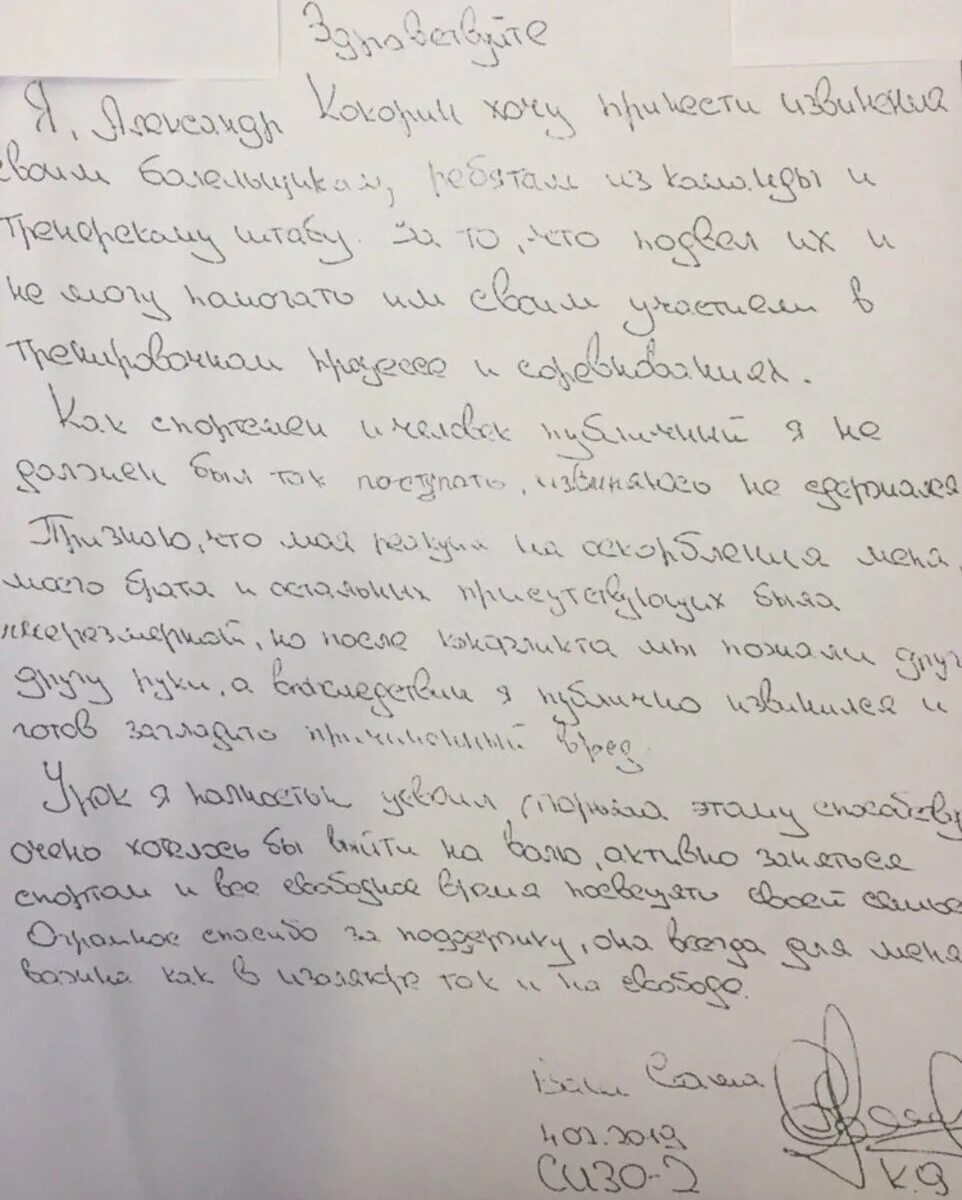 Здравствуйте
Я, Александр Кокорин хочу принести извинения
своим болельщикам, ребятам из команды и
тренерскому штабу. За то, что подвел их и
не могу помогать им своим участием в
тренировочном процессе и соревнованиях.
Как спортсмен и человек публичный я не
должен был так поступать, извиняюсь не сдержался
Признаю, что моя реакция на оскорбления меня,
моего брата и остальных присутствующих была
чрезмерной, но после конфликта мы пожали друг
другу руки, а впоследствии я публично извинился и
готов загладить причиненный вред.
Урок я полностью усвоил, тюрьма этому способству
очень хотелось бы выйти на волю, активно заняться
спортом и все свободное время посвещять своей семье
Огромное спасибо за поддержку, она всегда для меня
важна как в изоляторе так и на свободе.
Ваш Саша
4.02.2019
СИЗО-2 К.О